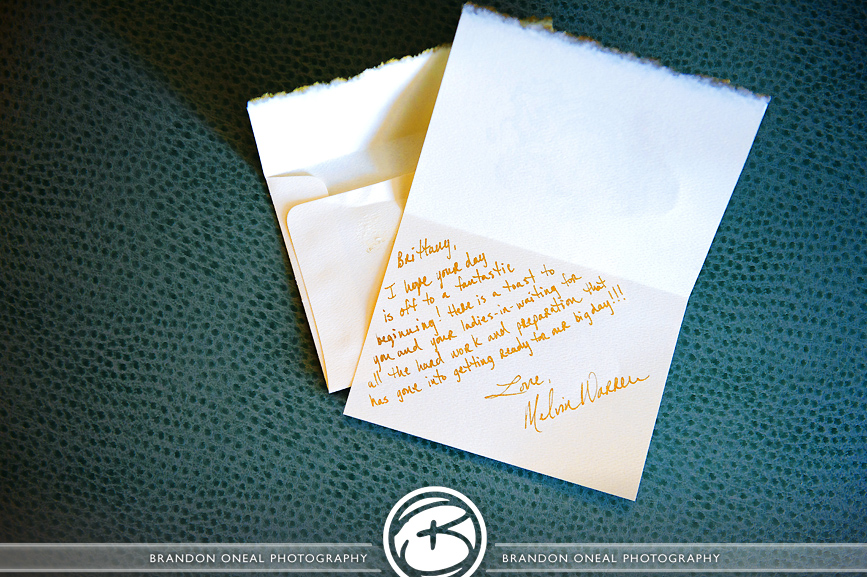 Brittany,
I hope your day
is off to a fantastic
beginning! Here is a toast to
you and your ladies-in waiting for
all the hard work and preparation that
has gone into getting ready for our big day!!!
Love,
Melvin Warren
BRANDON ONEAL PHOTOGRAPHY
BRANDON ONEAL PHOTOGRAPHY